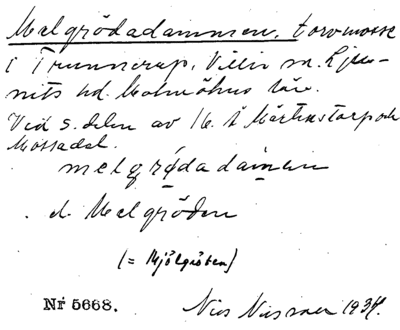 Melgrödadammen, torvmosse
i Trunnerup, Villie sn. Lju-
nits hd. Malmöhus län.
Vid s. delen av 16. Å Mårtenstorp och
Mossadal.
melgrödadamen
d. Melgröden
(= Mjölgröten)
Nr 5668.
Nils 1934.